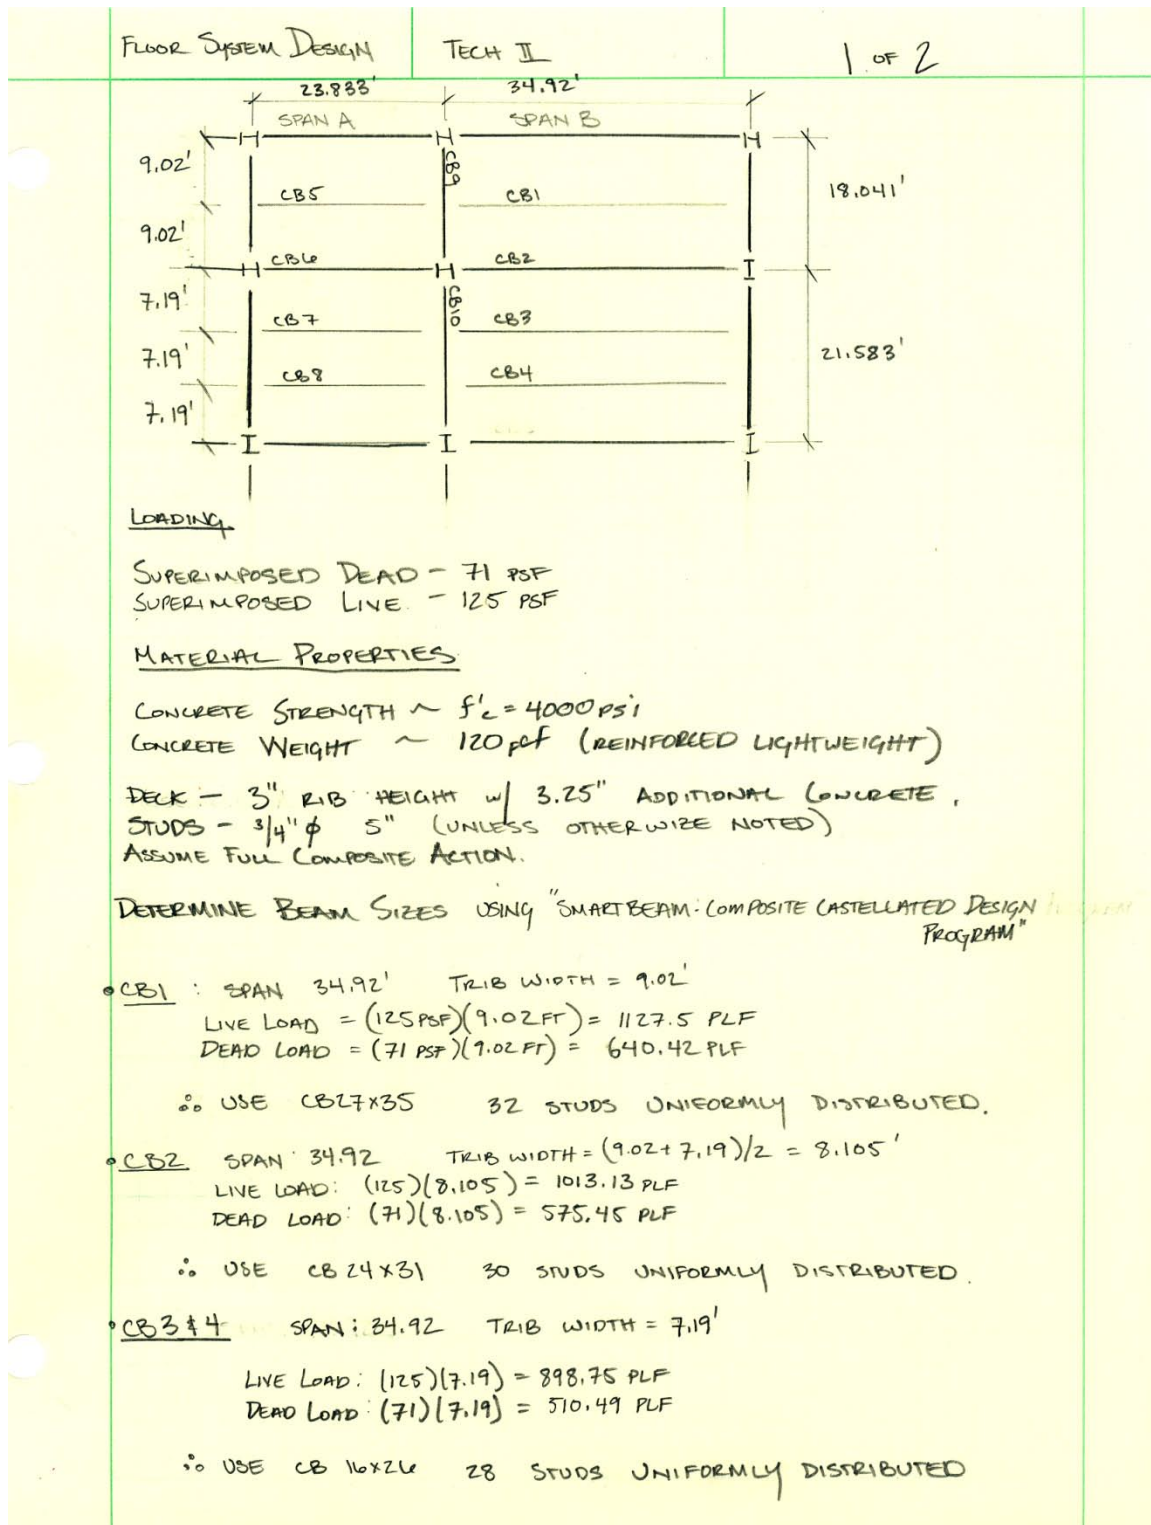 FLOOR SYSTEM DESIGN TECH II 1 OF 2
23.833' 34.92'
SPAN A SPAN B
9.02' CB9
CB5 CB1 18.041'
9.02'
CB6 CB2
7.19' CB10
CB7 CB3
7.19' 21.583'
CB8 CB4
7.19'
LOADING
SUPERIMPOSED DEAD - 71 PSF
SUPERIMPOSED LIVE - 125 PSF
MATERIAL PROPERTIES
CONCRETE STRENGTH ~ f'c = 4000 psi
CONCRETE WEIGHT ~ 120 pcf (REINFORCED LIGHTWEIGHT)
DECK - 3" RIB HEIGHT w/ 3.25" ADDITIONAL CONCRETE,
STUDS - 3/4" ϕ 5" (UNLESS OTHERWIZE NOTED)
ASSUME FULL COMPOSITE ACTION.
DETERMINE BEAM SIZES USING "SMARTBEAM: COMPOSITE CASTELLATED DESIGN
PROGRAM"
• CB1 : SPAN 34.92' TRIB WIDTH = 9.02'
LIVE LOAD = (125 PSF)(9.02 FT) = 1127.5 PLF
DEAD LOAD = (71 PSF)(9.02 FT) = 640.42 PLF
∴ USE CB27x35 32 STUDS UNIFORMLY DISTRIBUTED.
• CB2 SPAN 34.92 TRIB WIDTH = (9.02+7.19)/2 = 8.105'
LIVE LOAD: (125)(8.105) = 1013.13 PLF
DEAD LOAD: (71)(8.105) = 575.45 PLF
∴ USE CB 24x31 30 STUDS UNIFORMLY DISTRIBUTED.
• CB3 & 4 SPAN: 34.92 TRIB WIDTH = 7.19'
LIVE LOAD: (125)(7.19) = 898.75 PLF
DEAD LOAD: (71)(7.19) = 510.49 PLF
∴ USE CB 16x26 28 STUDS UNIFORMLY DISTRIBUTED